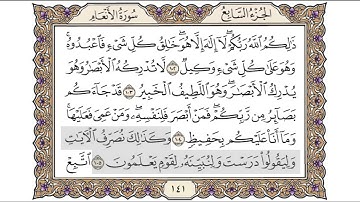 الجزء السابع سورة الأنعام
ذَٰلِكُمُ ٱللَّهُ رَبُّكُمْ ۖ لَآ إِلَٰهَ إِلَّا هُوَ ۖ خَٰلِقُ كُلِّ شَىْءٍ فَٱعْبُدُوهُ ۚ
وَهُوَ عَلَىٰ كُلِّ شَىْءٍ وَكِيلٌ ١٠٢ لَّا تُدْرِكُهُ ٱلْأَبْصَٰرُ وَهُوَ
يُدْرِكُ ٱلْأَبْصَٰرَ ۖ وَهُوَ ٱللَّطِيفُ ٱلْخَبِيرُ ١٠٣ قَدْ جَآءَكُم
بَصَآئِرُ مِن رَّبِّكُمْ ۖ فَمَنْ أَبْصَرَ فَلِنَفْسِهِۦ ۖ وَمَنْ عَمِىَ فَعَلَيْهَا ۚ
وَمَآ أَنَا۠ عَلَيْكُم بِحَفِيظٍ ١٠٤ وَكَذَٰلِكَ نُصَرِّفُ ٱلْءَايَٰتِ
وَلِيَقُولُوا۟ دَرَسْتَ وَلِنُبَيِّنَهُۥ لِقَوْمٍ يَعْلَمُونَ ١٠٥ ٱتَّبِعْ
١٤١